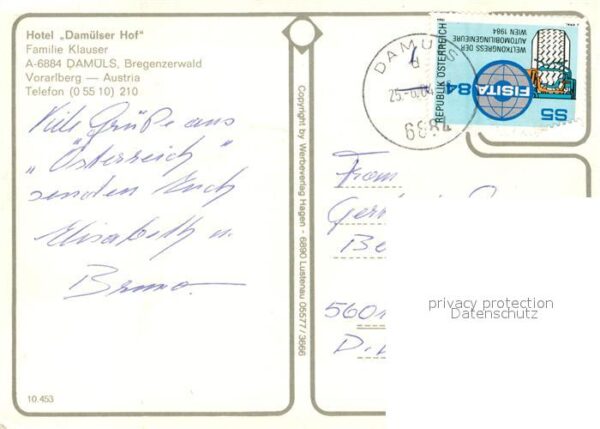 Hotel „Damülser Hof“
Familie Klauser
A-6884 DAMÜLS, Bregenzerwald
Vorarlberg — Austria
Telefon (0 55 10) 210
Viele Grüße aus
„Österreich“
senden Euch
Elisabeth u.
Bruno
10.453
Copyright by Werbeverlag Hagen - 6890 Lustenau 05577/3666
DAMÜLS
6884
REPUBLIK ÖSTERREICH
WELTKONGRESS DER
AUTOMOBILINGENIEURE
WIEN 1984
FISITA 84
S5
From
560
D.
privacy protection
Datenschutz